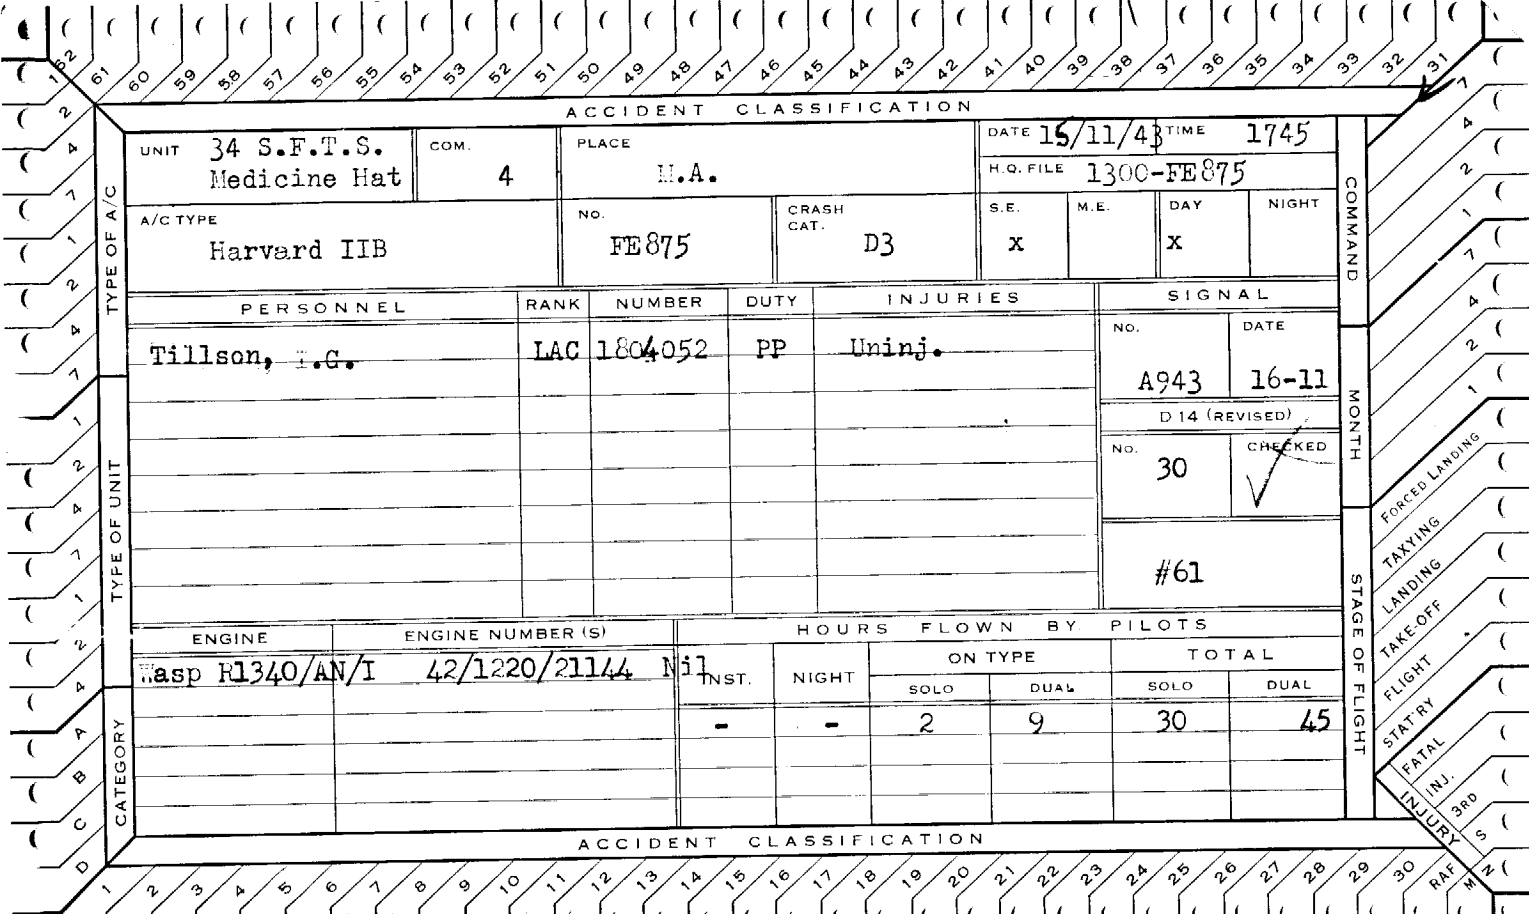 62 61 60 59 58 57 56 55 54 53 52 51 50 49 48 47 46 45 44 43 42 41 40 39 38 37 36 35 34 33 32 31
ACCIDENT CLASSIFICATION
UNIT 34 S.F.T.S.
Medicine Hat
COM.
4
PLACE
M.A.
DATE 15/11/43 TIME 1745
H.Q. FILE 1300-FE875
A/C TYPE
Harvard IIB
NO.
FE875
CRASH
CAT.
D3
S.E. M.E. DAY NIGHT
x x
PERSONNEL RANK NUMBER DUTY INJURIES
Tillson, .G. LAC 1804052 PP Uninj.
SIGNAL
NO. DATE
A943 16-11
D 14 (REVISED)
NO. CHECKED
30
#61
ENGINE ENGINE NUMBER (S)
Wasp R1340/AN/I 42/1220/21144 Nil
HOURS FLOWN BY PILOTS
INST. NIGHT ON TYPE TOTAL
SOLO DUAL SOLO DUAL
- - 2 9 30 45
ACCIDENT CLASSIFICATION
1 2 3 4 5 6 7 8 9 10 11 12 13 14 15 16 17 18 19 20 21 22 23 24 25 26 27 28 29 30 RAF
TYPE OF A/C
TYPE OF UNIT
CATEGORY
1 2 4 7 1 2 4 7 1 2 4 7 1 2 4 A B C D
COMMAND
MONTH
STAGE OF FLIGHT
7 4 2 1 7 4 2 1
FORCED LANDING
TAXYING
LANDING
TAKE-OFF
FLIGHT
STAT'RY
FATAL
INJ.
3RD
S
N
M
INJURY